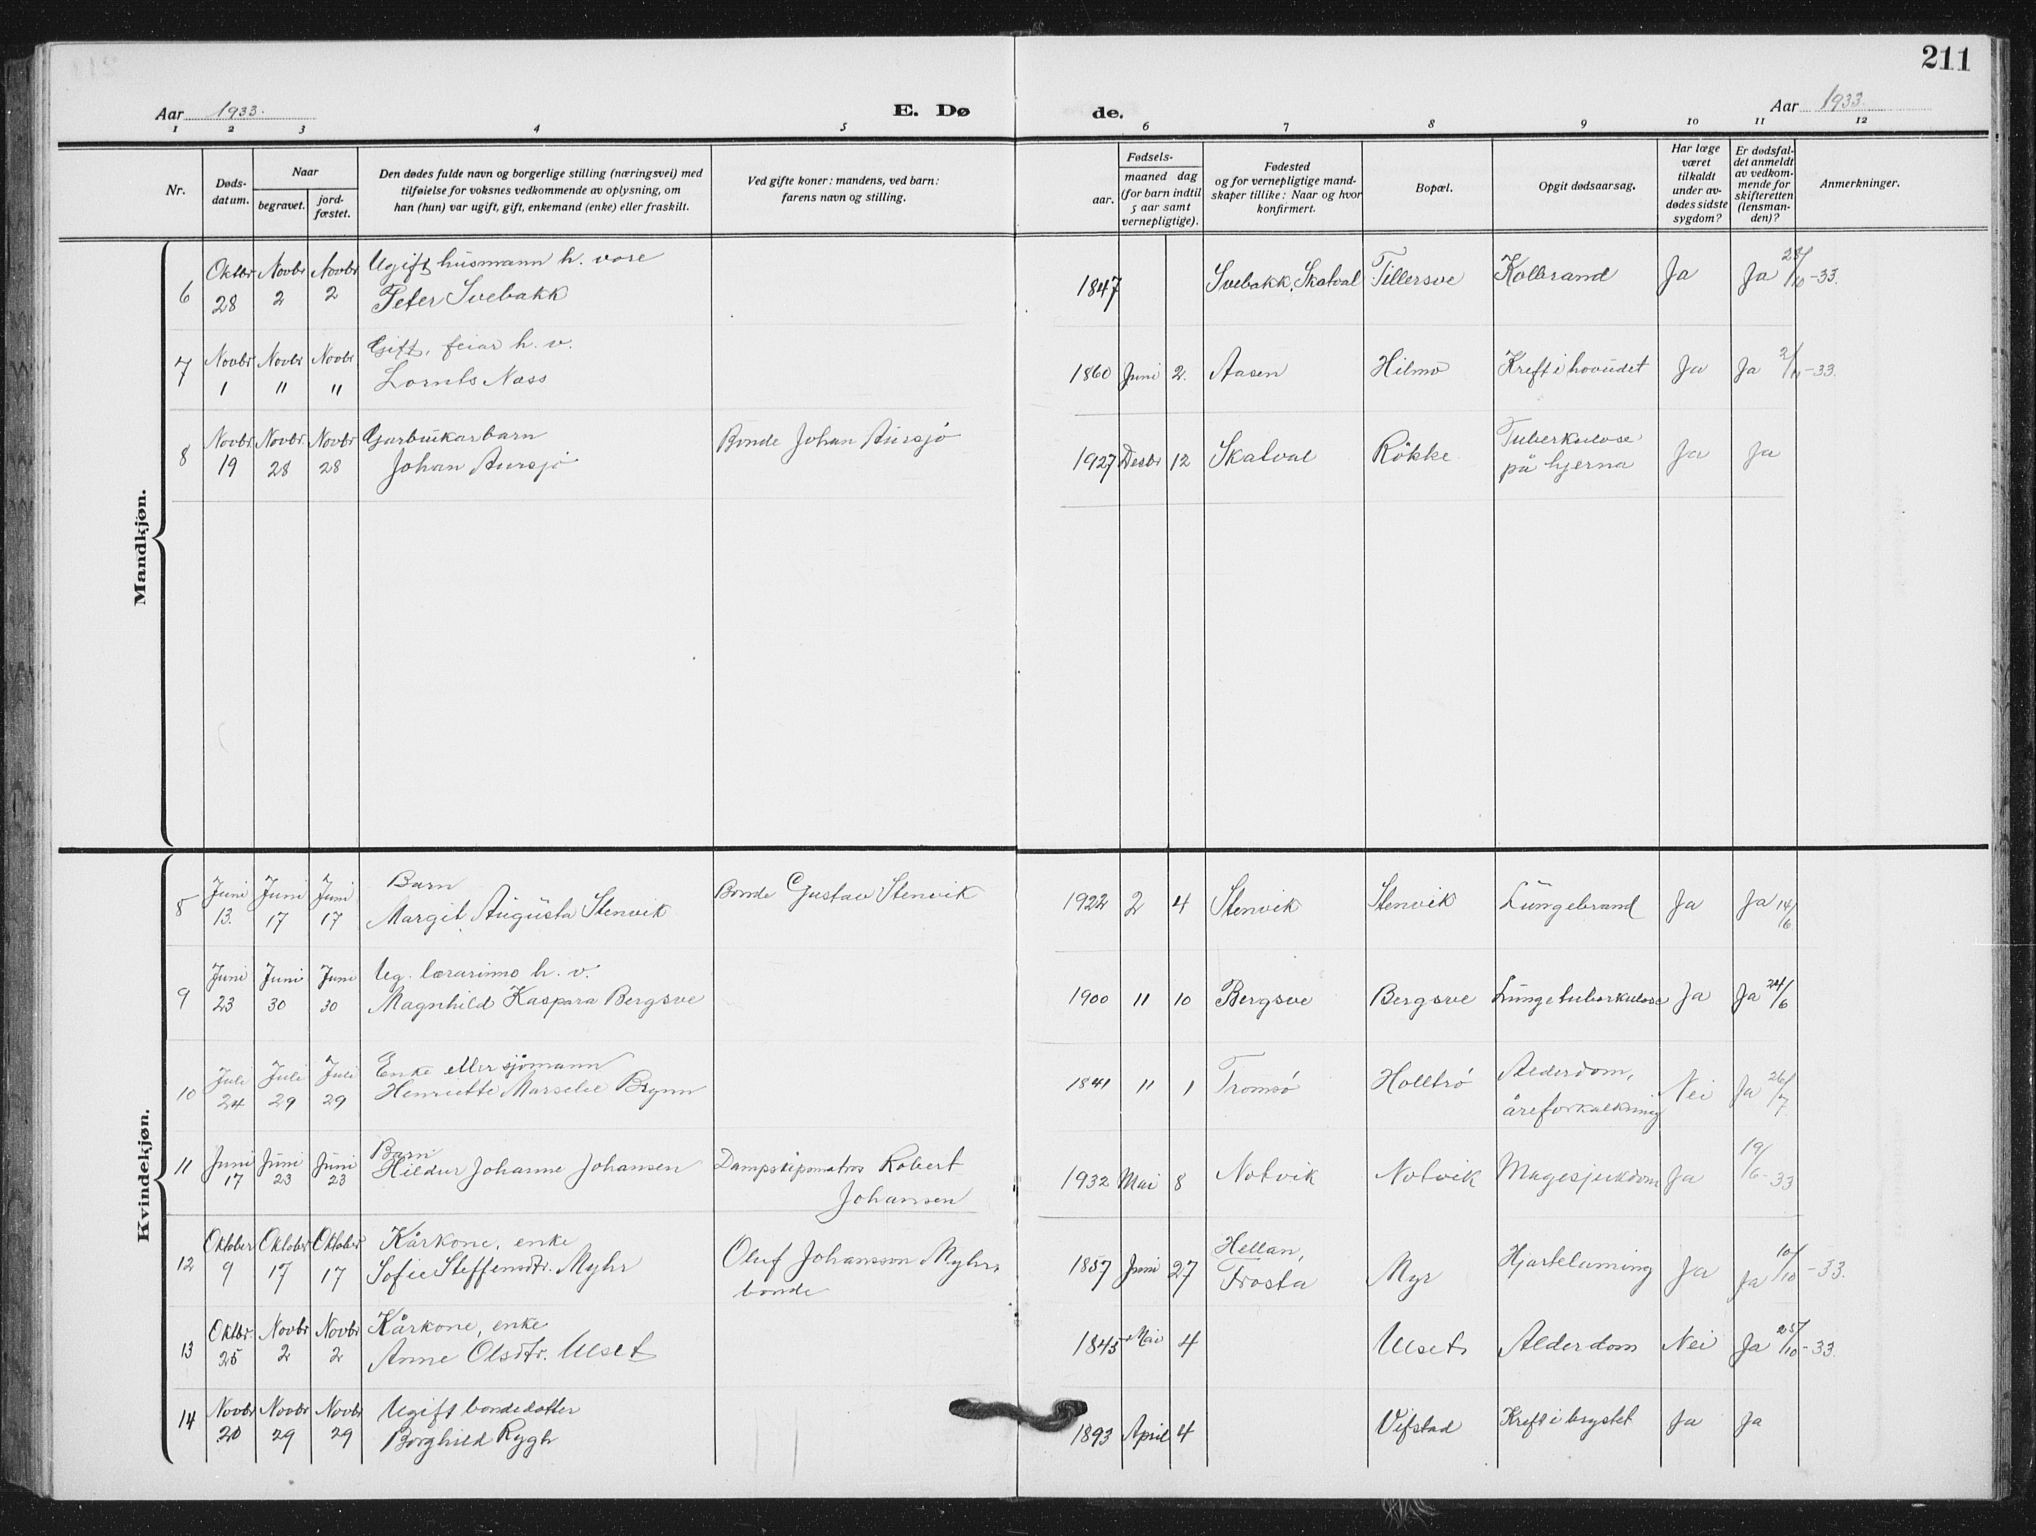 211
Aar 1933. E. Døde. Aar 1933.
1 2 3 4 5 6 7 8 9 10 11 12
Nr.
Døds-
datum.
Naar
begravet.
jord-
fæstet.
Den dødes fulde navn og borgerlige stilling (næringsvei) med
tilføielse for voksnes vedkommende av oplysning, om
han (hun) var ugift, gift, enkemand (enke) eller fraskilt.
Ved gifte koner: mandens, ved barn:
farens navn og stilling.
Fødsels-
aar.
maaned dag
(for barn indtil
5 aar samt
vernepligtige).
Fødested
og for vernepligtige mand-
skaper tillike: Naar og hvor
konfirmert.
Bopæl.
Opgit dødsaarsag.
Har læge
været
tilkaldt
under av-
dødes sidste
sygdom?
Er dødsfal-
det anmeldt
av vedkom-
mende for
skifteretten
(lensman-
den)?
Anmerkninger.
Mandkjøn.
6 Oktbr 28 Novbr 2 Novbr 2 Ugift husmann h. vore
Peter Svebakk 1847 Svebakk, Skatval Tillersve Kolbrand Ja Ja 28/10-33.
7 Novbr 1 Novbr " Novbr " Gift, feiar h. v.
Lornts Næss 1860 Juni 2. Aasen Hilmo Kreft i hovudet Ja Ja 2/11-33.
8 Novbr. 19 Novbr. 28 Novbr 28 Garbrukarbarn
Johan Aursjö Bonde Johan Aursjö 1927 Desbr 12 Skatval Rökke Tuberkulose
på hjerna Ja Ja
Kvindekjøn.
8 Juni 13. Juni 17 Juni 17 Barn
Margit Augusta Stenvik Bonde Gustav Stenvik 1922 2 4 Stenvik Stenvik Lungebrand Ja Ja 14/6
9 Juni 23 Juni 30 Juni 30 Ug. lærarinno h. v.
Magnhild Kaspara Bergsve 1900 11 10 Bergsve Bergsve Lungetuberkulose Ja Ja 24/6
10 Juli 24 Juli 29 Juli 29 Enke etter sjömann
Henriette Marselie Brynn 1841 11 1 Tromsö Holltrö Alderdom,
åreforkalkning Nei Ja 26/7
11 Juni 17 Juni 23 Juni 23 Barn
Hildur Johanne Johansen Dampskipsmatros Robert
Johansen 1932 Mai 8 Notvik Notvik Magesjukdom Ja 19/6-33
12 Oktober 9 Oktober 17 Oktober 17 Kårkone, enke
Sofie Steffensdtr. Myhr Oluf Johansson Myhr,
bonde 1857 Juni 27 Hellan,
Frosta Myr Hjartelaming Ja Ja 10/10-33.
13 Oktbr. 25 Novbr 2 Novbr 2 Kårkone, enke
Anne Olsdtr. Ulset 1845 Mai 4 Ulset Alderdom Nei Ja 25/10-33.
14 Novbr 20 Novbr 29 Novbr 29 Ugift bondedotter
Borghild Rygh 1893 April 4 Vifstad Kreft i brystet Ja Ja